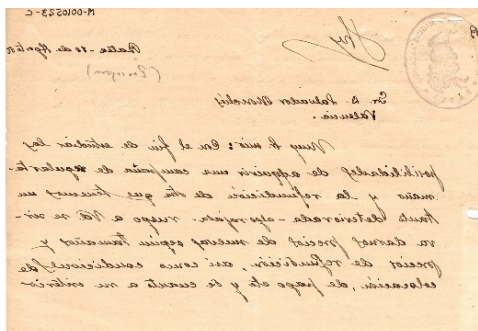 M-0010523-C
Batea - 10 de Agosto
(Tarragona)
Sr. D. Salvador Manclús
Valencia.
Muy Sr. mio: Con el fin de estudiar las
posibilidades de adquirir una campana de regular ta-
maño y la refundición de otra que tenemos un
tanto deteriorada - ruego a Vd se sir-
va darnos precios de nuevas segun tamaños y
precios de refundición, asi como condiciones de
colocación, de pago etc y de cuanto a su